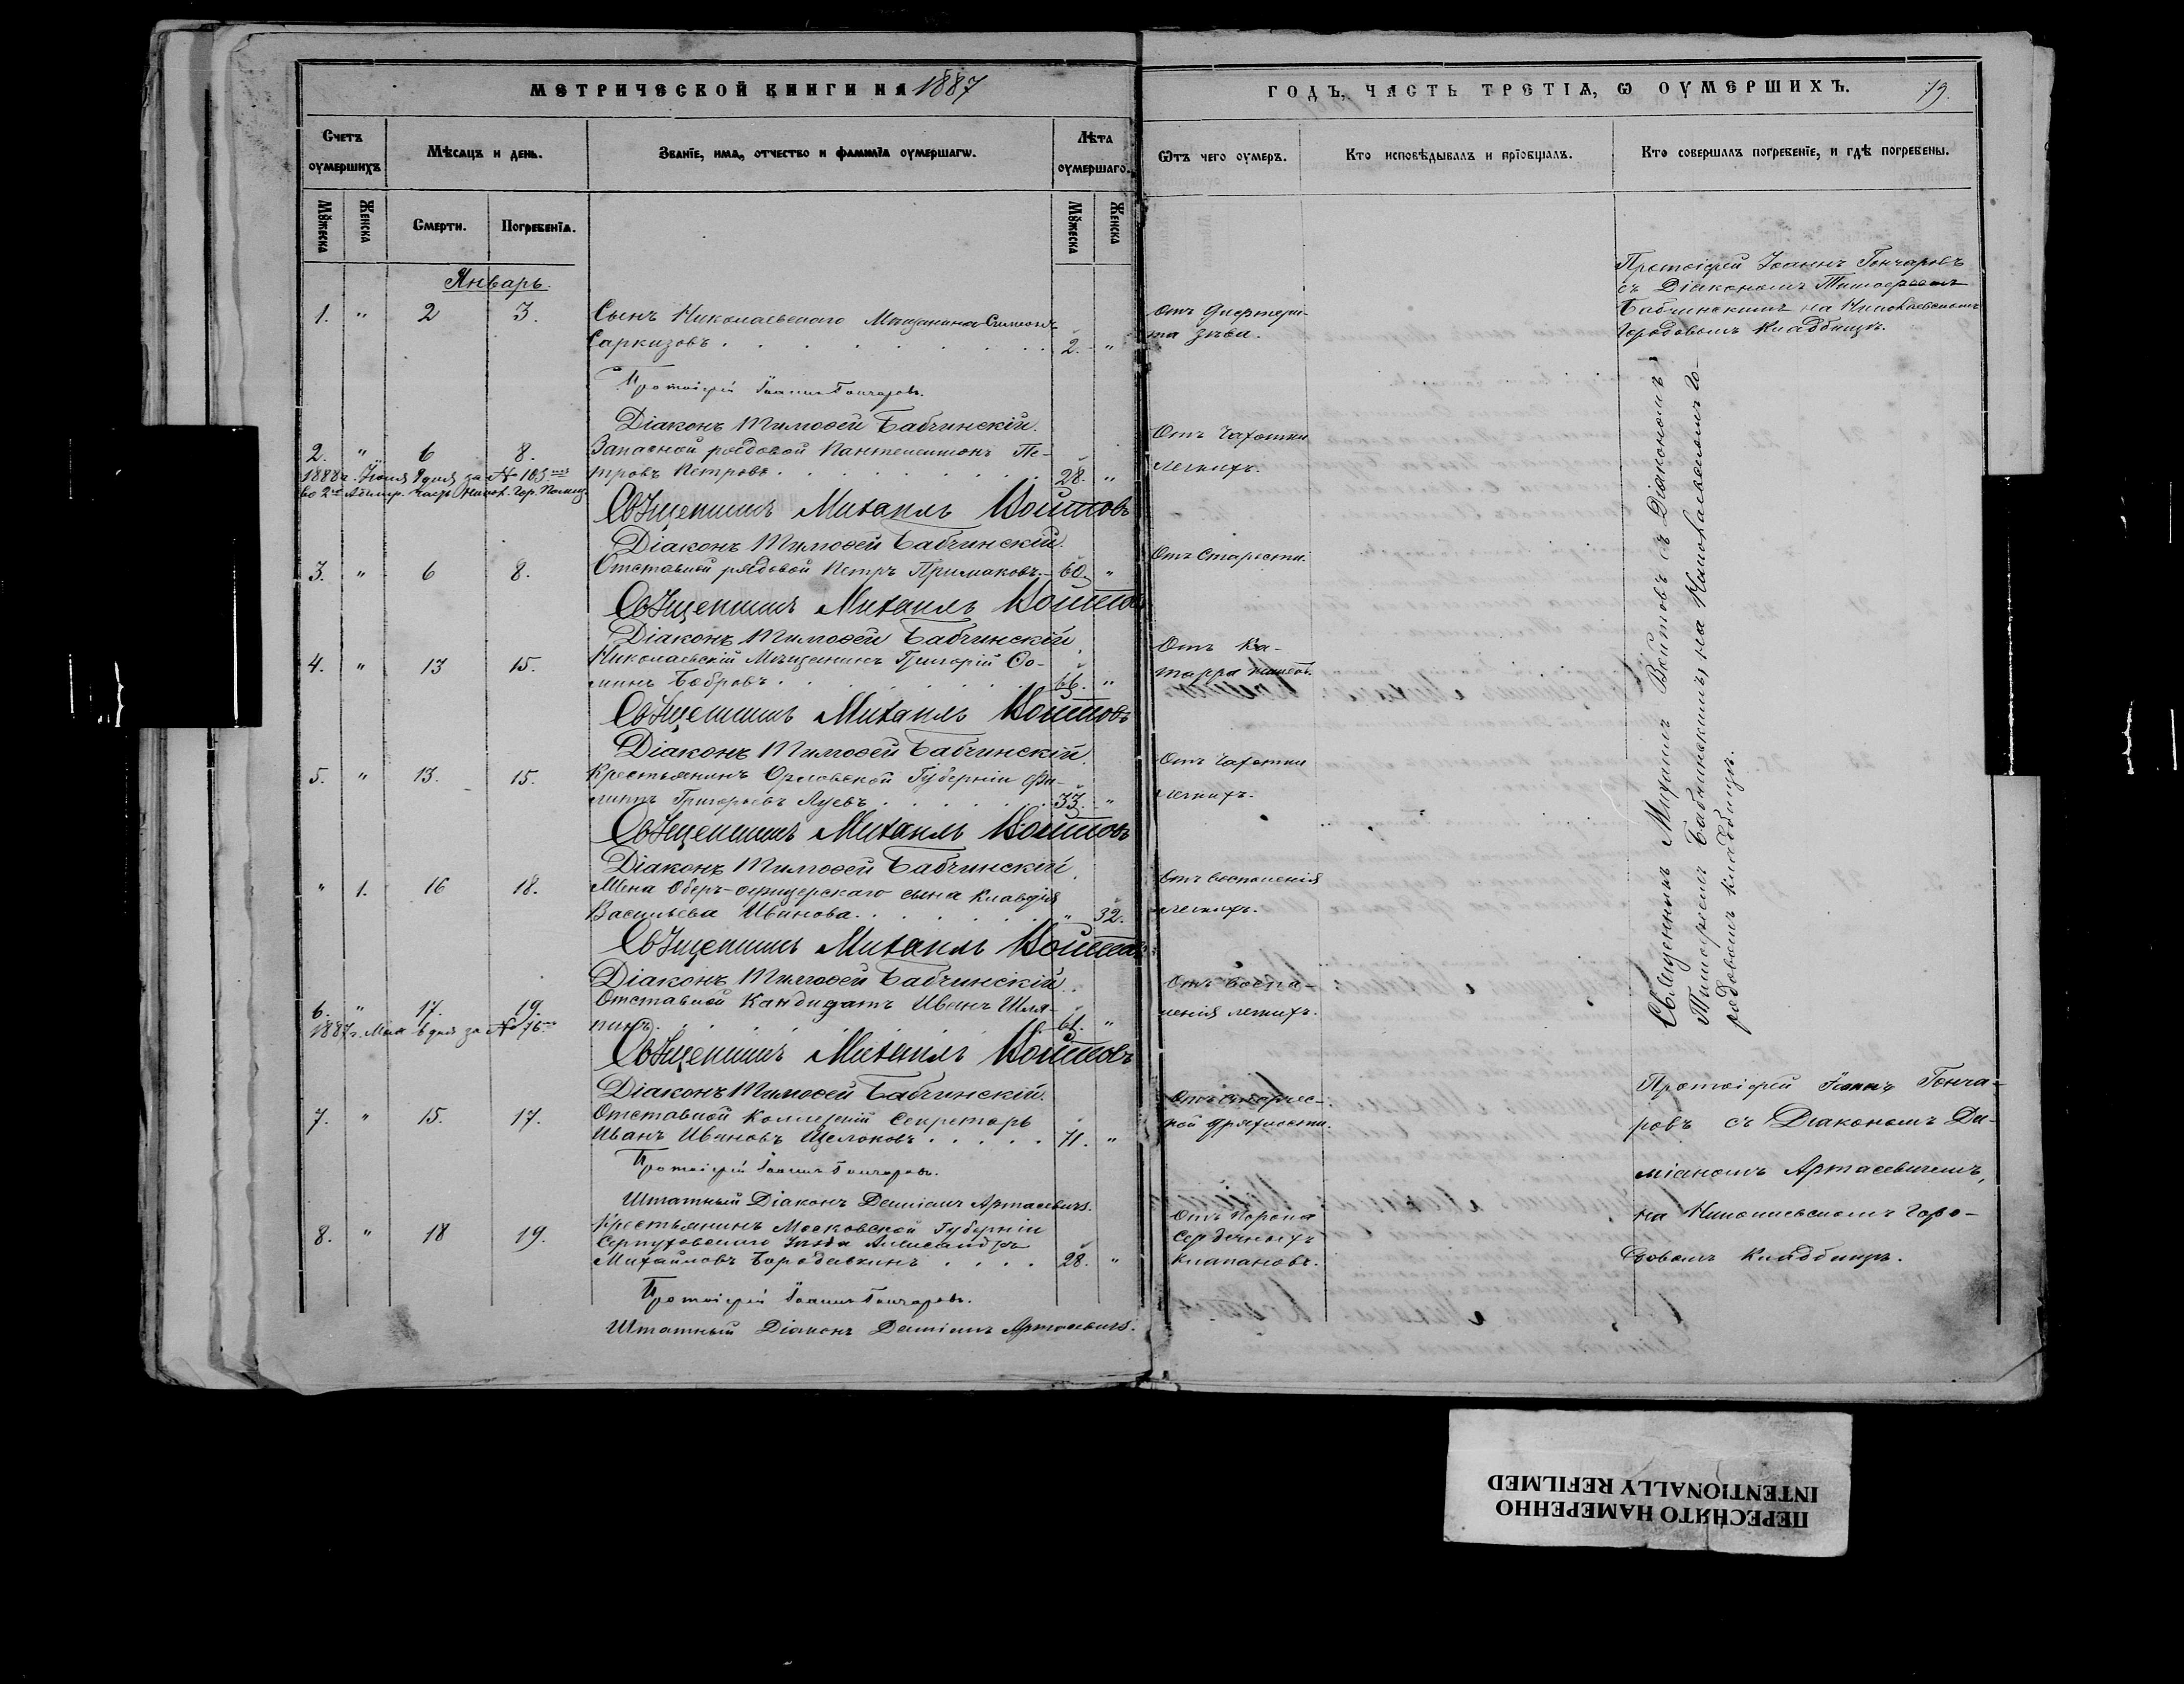 МЕТРИЧЕСКОЙ КНИГИ НА 1887
ГОДЪ, ЧАСТЬ ТРЕТІѦ, Ѡ ОУМЕРШИХЪ.
79.
Счетъ оумершихъ
Мѣсѧцъ и день.
Званїе, имѧ, отчество и фамилїа оумершагѡ.
Лѣта оумершаго.
Ѿтъ чего оумеръ.
Кто исповѣдывалъ и прїобщалъ.
Кто совершалъ погребенїе, и гдѣ погребены.
Мꙋжеска
Женска
Смерти.
Погребенїѧ.
Мꙋжеска
Женска
Январь.
1. " 2 3.
Сынъ Николаевскаго Мѣщанина Симеонъ
Саркизовъ 2. "
Отъ Дифтери-
та зѣва.
Протоіерей Іоаннъ Гончаровъ
съ Діакономъ Тимоѳеемъ
Бабчинскимъ на Николаевскомъ
Городовомъ Кладбищѣ.
Протоіерей Іоаннъ Гончаровъ.
Діаконъ Тимоѳей Бабчинскій.
2. " 6 8.
Запасной рядовой Пантелеимонъ Пе-
тровъ Петровъ 28. "
Отъ Чахотки
легкихъ.
1888 г. Іюня 9 дня за № 163
во 2ю Адмир. часть Никол. Гор. Полиц.
Священникъ Михаилъ Войтовъ
Діаконъ Тимоѳей Бабчинскій.
3. " 6 8.
Отставной рядовой Петръ Примаковъ. 60. "
Отъ Старости.
Священникъ Михаилъ Войтовъ
Діаконъ Тимоѳей Бабчинскій
4. " 13 15.
Николаевскій Мѣщанинъ Григорій Ѳо-
минъ Бобровъ 66. "
Отъ Ка-
тарра кишекъ.
Священникъ Михаилъ Войтовъ
Діаконъ Тимоѳей Бабчинскій.
5. " 13. 15.
Крестьянинъ Орловской Губерніи Фи-
липпъ Григорьевъ 33. "
Отъ Чахотки
легкихъ.
Священникъ Михаилъ Войтовъ
Діаконъ Тимоѳей Бабчинскій.
" 1. 16 18.
Жена Оберъ-офицерскаго сына Клавдія
Васильева Иванова. " 32.
Отъ воспаленія
легкихъ.
Священникъ Михаилъ Войтовъ
Діаконъ Тимоѳей Бабчинскій.
6. " 17. 19.
Отставной Кандидатъ Иванъ Шля-
пинъ. 61. "
Отъ воспа-
ленія легкихъ.
1887 г. Мая 6 дня за № 76
Священникъ Михаилъ Войтовъ
Діаконъ Тимоѳей Бабчинскій.
Священникъ Михаилъ Войтовъ съ Діакономъ
Тимоѳеемъ Бабчинскимъ, на Николаевскомъ Го-
родовомъ кладбищѣ.
7. " 15. 17.
Отставной Коллежскій Секретарь
Иванъ Ивановъ Щелоковъ 71. "
Отъ старчес-
кой дряхлости.
Протоіерей Іоаннъ Гончаровъ.
Штатный Діаконъ Даміанъ Артасевичъ.
8. " 18 19.
Крестьянинъ Московской Губерніи
Серпуховскаго Уѣзда Александръ
Михайловъ Бородавкинъ 28. "
Отъ Порока
Сердечныхъ
Клапановъ.
Протоіерей Іоаннъ Гонча-
ровъ съ Діакономъ Да-
міаномъ Артасевичемъ,
на Николаевскомъ Горо-
довомъ Кладбищѣ.
Протоіерей Іоаннъ Гончаровъ.
Штатный Діаконъ Даміанъ Артасевичъ.
ПЕРЕСНЯТО НАМЕРЕННО
INTENTIONALLY REFILMED